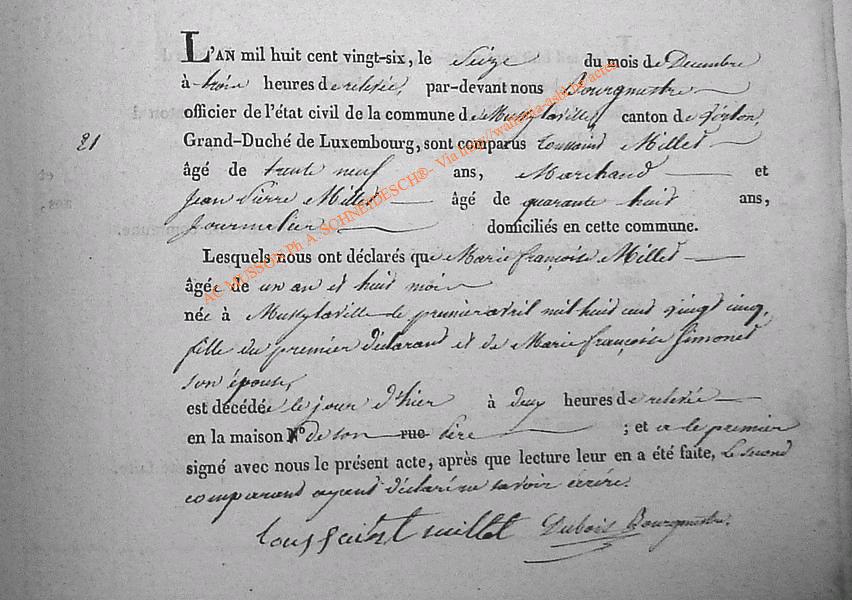 L'AN mil huit cent vingt-six, le Seize du mois de Decembre
à trois heures de relevée, par-devant nous Bourgmestre
officier de l'état civil de la commune de Mussylaville, canton de Virton,
21 Grand-Duché de Luxembourg, sont comparus Toussaint Millet
âgé de trente neuf ans, Marchand et
Jean Pierre Millet âgé de quarante huit ans,
Journalier domiciliés en cette commune.
Lesquels nous ont déclarés que Marie françoise Millet
âgée de un an et huit mois
née à Mussylaville le premier avril mil huit cent vingt cinq,
fille du premier déclarant et de Marie françoise Simonet
son épouse,
est décédée le jour d'hier à deux heures de relevée
en la maison N° de son rue père ; et a le premier
signé avec nous le présent acte, après que lecture leur en a été faite, le second
comparant ayant déclaré ne savoir écrire.
toussaint millet Dubois Bourgmestre.
AC MUSSON Ph A. SCHNEIDESCH® - Via http://wallonia-asbl.be/actes